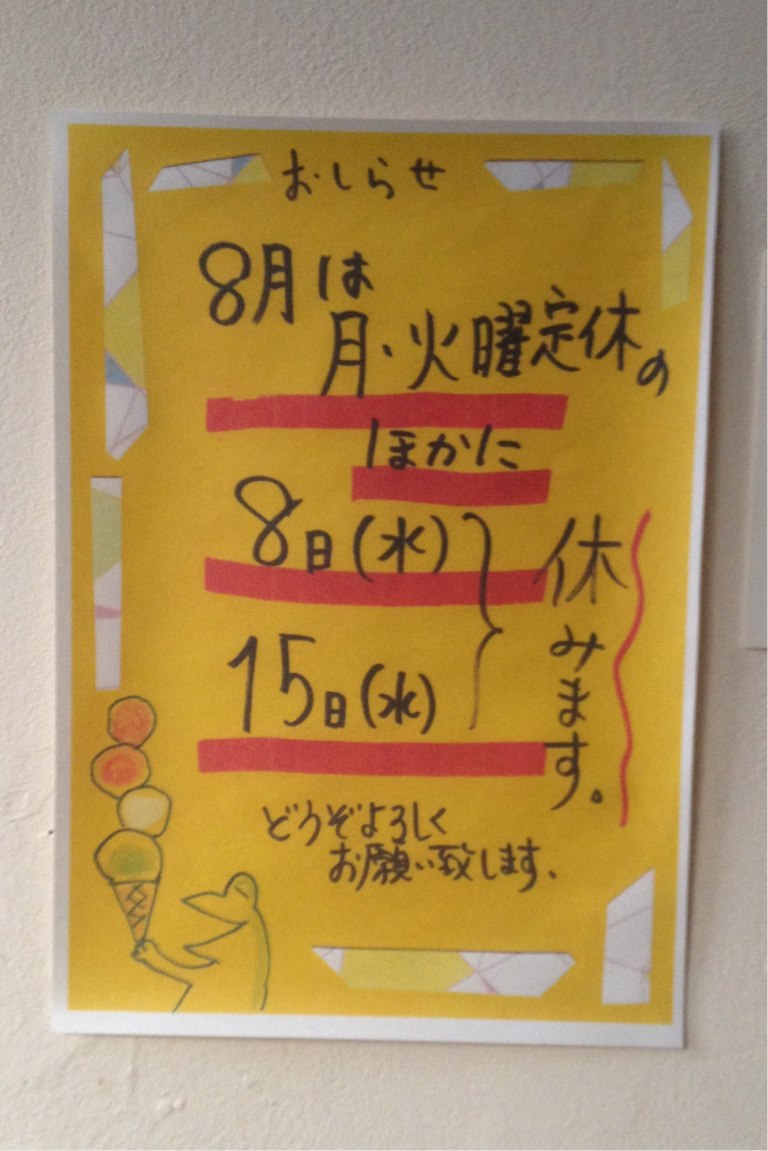 おしらせ
8月は
月・火曜定休の
ほかに
8日(水)
15日(水)
休みます。
どうぞよろしく
お願い致します.